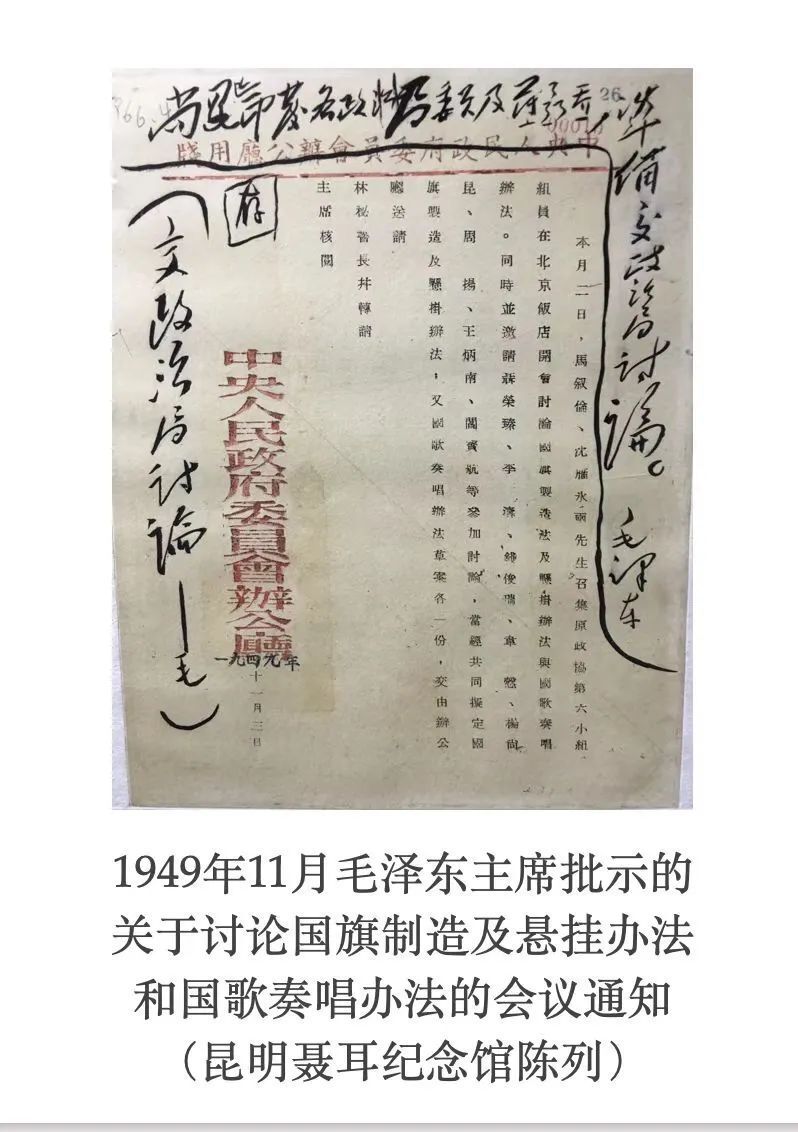 26
尚昆印發各政治局委员及
準備交政治局討論。 毛澤東
中央人民政府委員會辦公廳用牋
本月二日，馬叙倫、沈雁冰兩先生召集原政協第六小組
組員在北京飯店開會討論國旗製造法及懸掛辦法與國歌奏唱
辦法。同時並邀請聶榮臻、李　濤、錢俊瑞、韋　慤、楊尚
昆、周　揚、王炳南、閻寳航等參加討論，當經共同擬定國
旗製造及懸掛辦法，又國歌奏唱辦法草案各一份，交由辦公
廳送請
林秘書長幷轉請
主席核閱
存
中央人民政府委員會辦公廳
一九四九年十一月三日
（交政治局討論——毛）
1949年11月毛泽东主席批示的
关于讨论国旗制造及悬挂办法
和国歌奏唱办法的会议通知
（昆明聂耳纪念馆陈列）